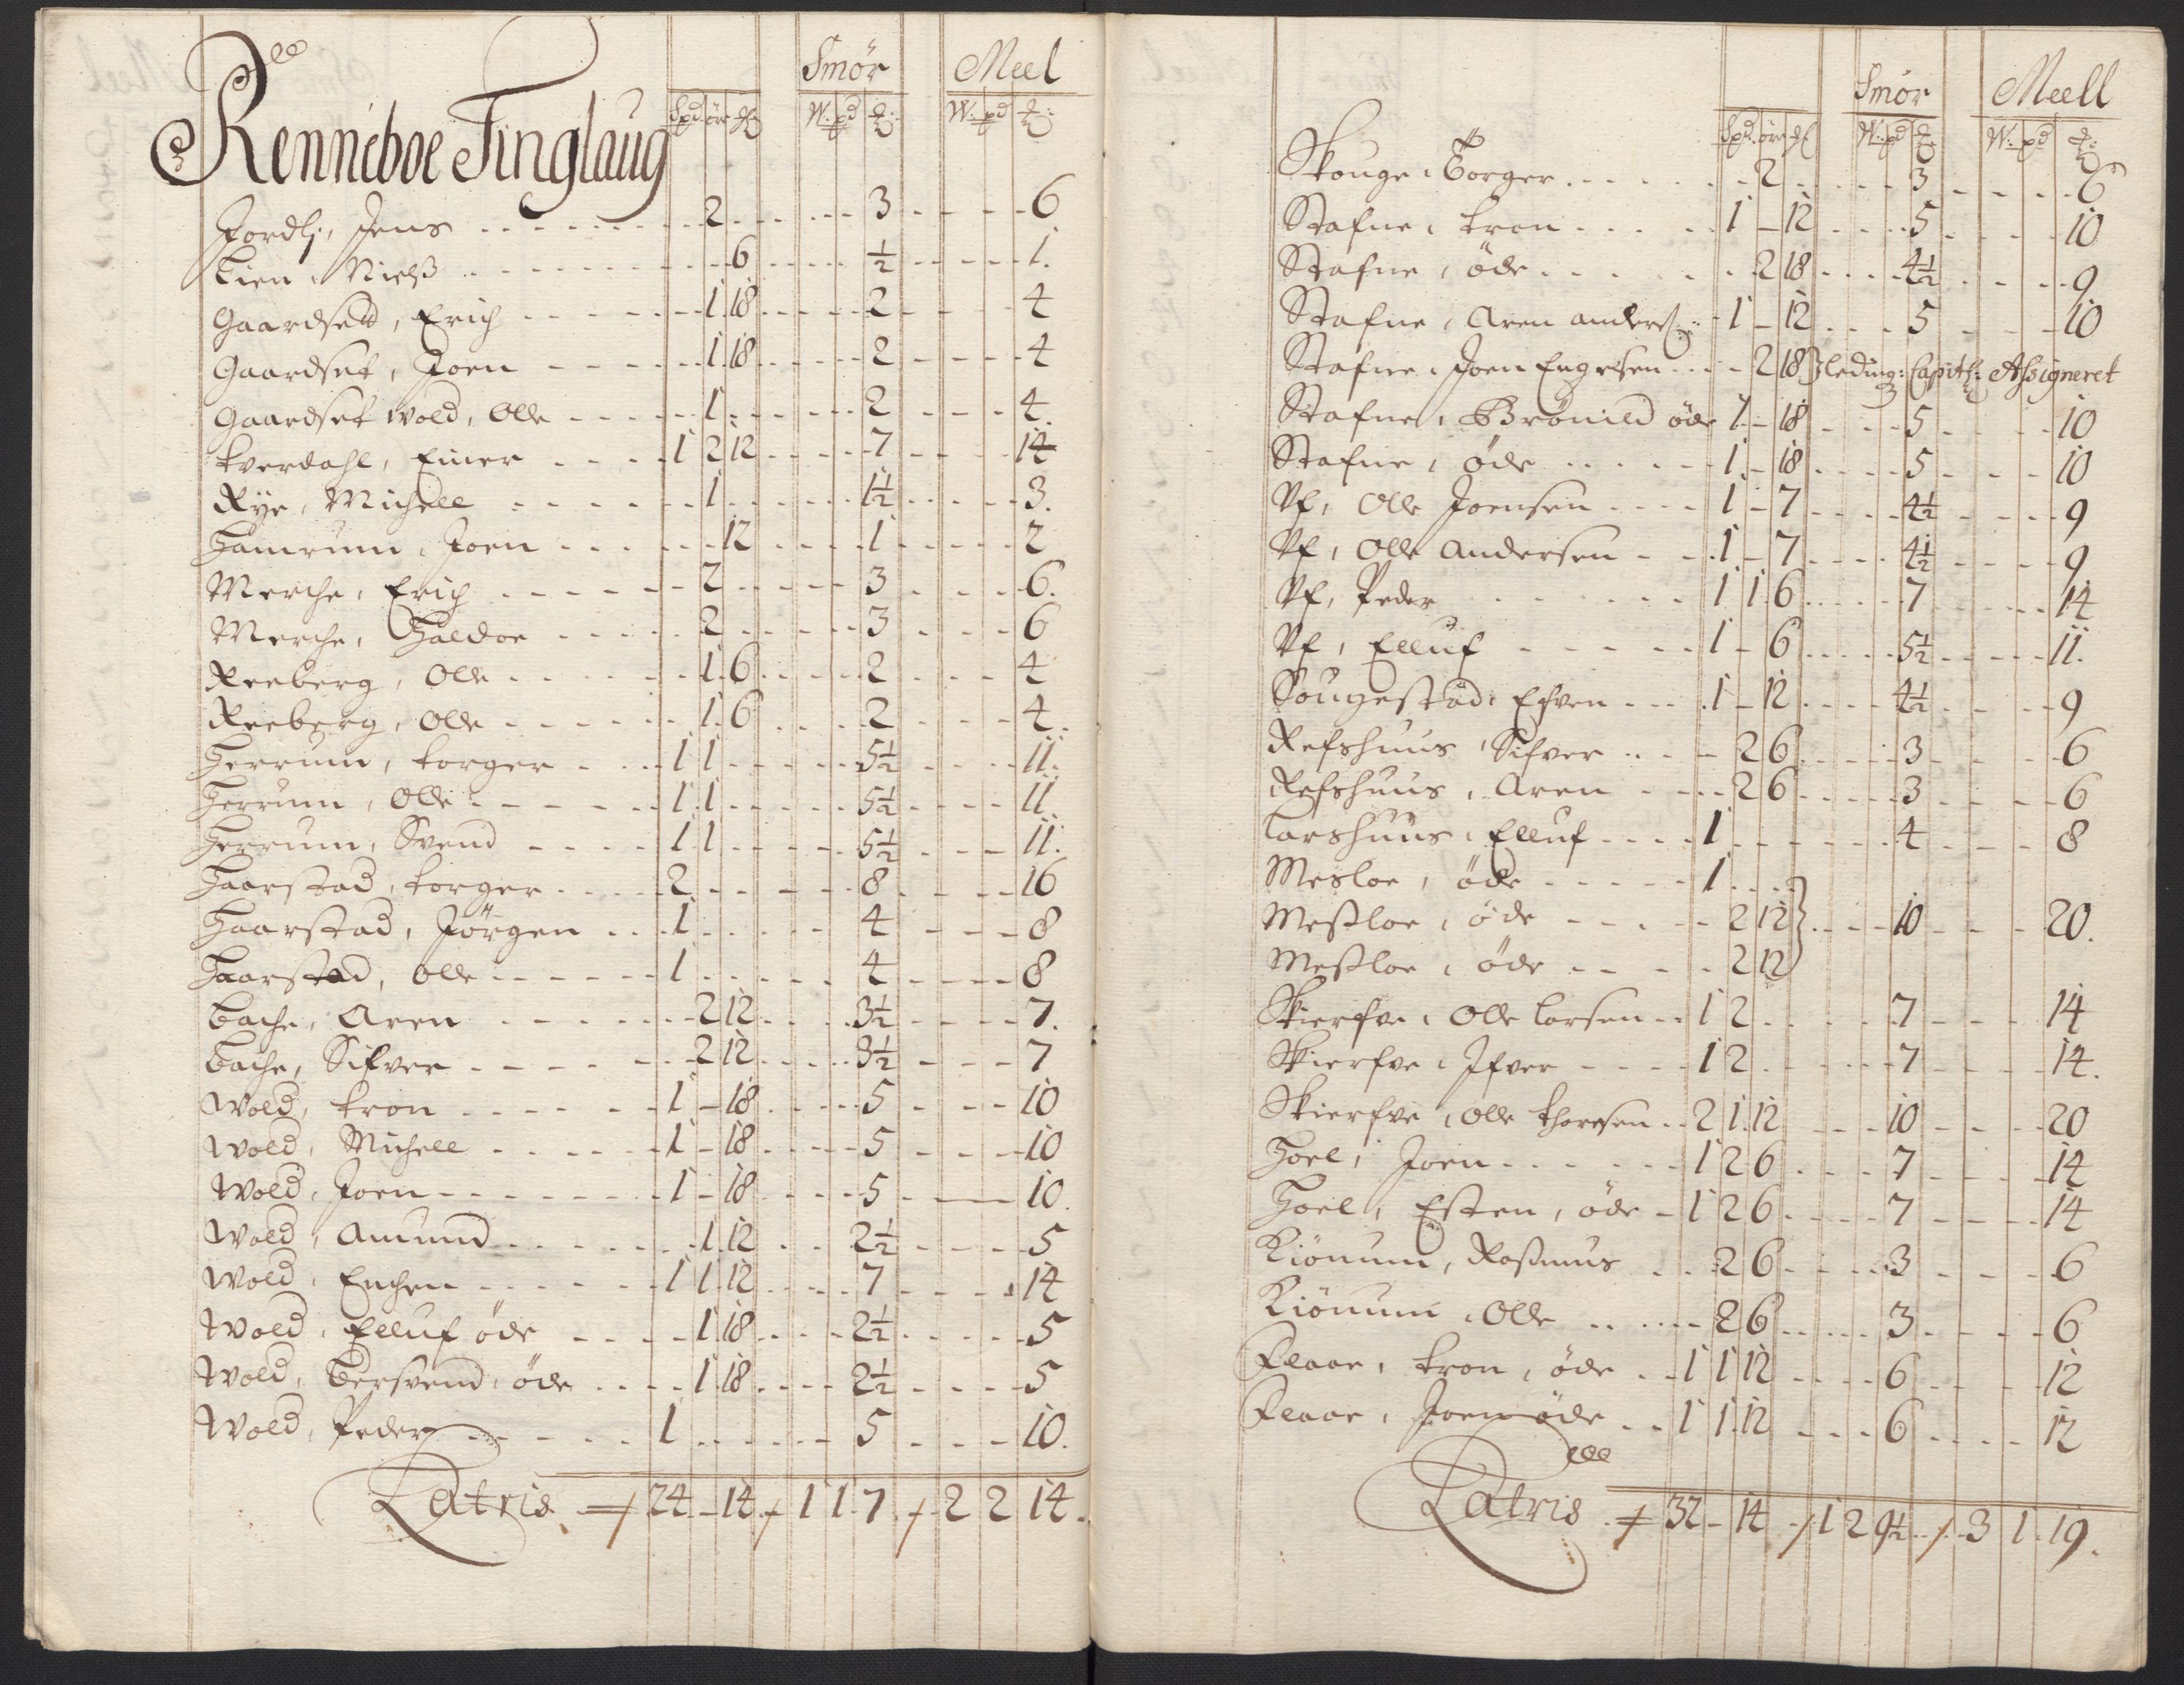 Smør Meel
Renneboe Tinglaug Spd. øre W: pd W: pd
Jordlj, Jens 2 3 6
Lien, Nielß 6 ½ 1.
Gaardset, Erich 1 18 2 4
Gaardset, Joen 1 18 2 4
Gaardset wold, Olle 1 2 4
kverdahl, Einer 1 2 12 7 14
Rye, Michell 1 1½ 3.
Hamrum, Joen 12 1 2
Merche, Erich 2 3 6.
Merche, Haldor 2 3 6
Reeberg, Olle 1 6 2 4
Reeberg, Olle 1 6 2 4
Herrum, torger 1 1 5½ 11.
Herrum, Olle 1 1 5½ 11
Herrum, Svend 1 1 5½ 11.
Haarstad, torger 2 8 16
Haarstad, Jørgen 1 4 8
Haarstad, Olle 1 4 8
bache, Aren 2 12 3½ 7.
bache, Sifver 2 12 3½ 7
Wold, tron 1 - 18 5 10
Wold, Michell 1 - 18 5 10
Wold, Joen 1 - 18 5 10.
Wold, Amund 1 12 2½ 5
Wold, Enchen 1 1 12 7 14
Wold, Elluf øde 1 18 2½ 5
Wold, Bersvend, øde 1 18 2½ 5
Wold, Peder 1 5 10.
Latris 24 - 14 1 1 7 2 2 14.
Smør Meell
Spd. øre W: pd W: pd
Skouge, Torger 2 3 6
Stafne, tron 1 - 12 5 10
Stafne, øde 2 18 4½ 9
Stafne, Aren anderß: 1 - 12 5 10
Stafne, Joen Engelsen 2 18 leding: Capitß: Assigneret
Stafne, Brønild øde 1 - 18 5 10
Stafne, øde 1 - 18 5 10
Vf, Olle Joensen 1 - 7 4½ 9
Vf, Olle Andersen 1 - 7 4½ 9
Vf, Peder 1 1 6 7 14
Vf, Elluf 1 - 6 5½ 11.
Sougestad, Efven 1 - 12 4½ 9
Refshuus, Sifver 2 6 3 6
Refshuus, Aren 2 6 3 6
Larshuus, Elluf 1 4 8
Mesloe, øde 1
Meßloe, øde 2 12 10 20.
Meßloe, øde 2 12
Skierfve, Olle Larsen 1 2 7 14
Skierfve, Ifver 1 2 7 14.
Skierfve, Olle thoresen 2 1 12 10 20
Hoel, Joen 1 2 6 7 14
Hoel, Esten, øde 1 2 6 7 14
Kiønum, Raßmus 2 6 3 6
Kiønum, Olle 2 6 3 6
Flaae, tron, øde 1 1 12 6 12
Flaae, Joen øde 1 1 12 6 12
Latris 32 - 14 1 2 9½ 3 1 19.